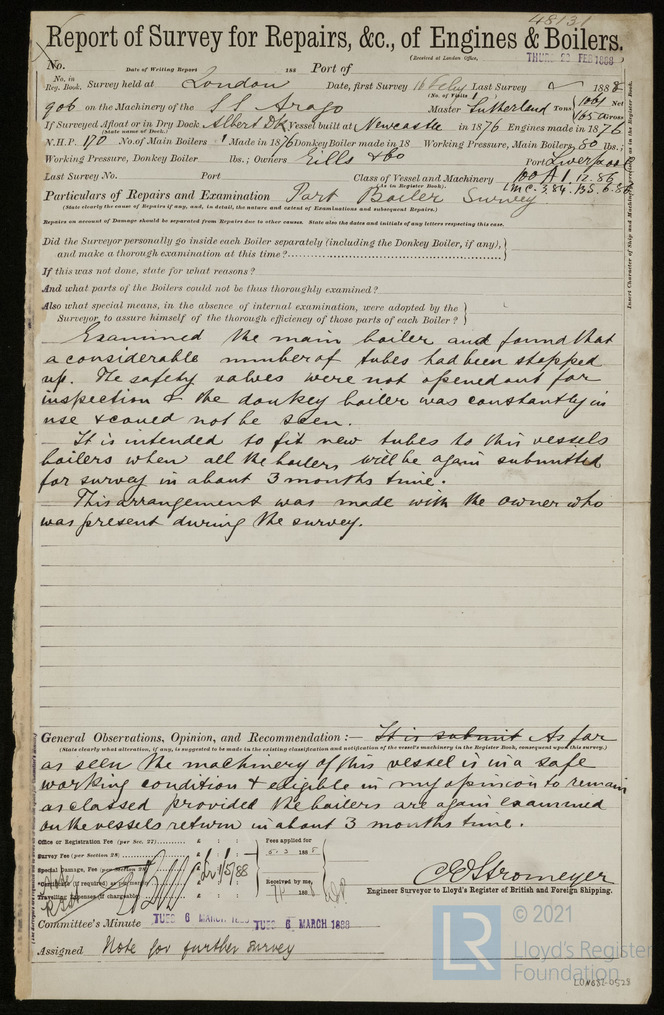 48131
Report of Survey for Repairs, &c., of Engines & Boilers.
(Received at London Office, THURS 23 FEB 1888
No. Date of Writing Report 188 Port of
No. in Reg. Book. Survey held at London Date, first Survey 16 Feby Last Survey 1888
(No. of Visits
906 on the Machinery of the S.S. Arago Master Sutherland Tons Net Gross
If Surveyed Afloat or in Dry Dock Albert Dk Vessel built at Newcastle in 1876 Engines made in 1876
(State name of Dock.)
N.H.P. 170 No. of Main Boilers 1 Made in 1876 Donkey Boiler made in 18 Working Pressure, Main Boilers, 80 lbs;
Working Pressure, Donkey Boiler lbs.; Owners & Co Port Liverpool
Last Survey No. Port Class of Vessel and Machinery 100 A 1. 12.86
(As in Register Book). LMC. 3.84. BS. 6.86
Particulars of Repairs and Examination Part Boiler Survey
(State clearly the cause of Repairs if any, and, in detail, the nature and extent of Examinations and subsequent Repairs.)
Repairs on account of Damage should be separated from Repairs due to other causes. State also the dates and initials of any letters respecting this case.
Insert Character of Ship and Machinery precisely as in the Register Book.
Did the Surveyor personally go inside each Boiler separately (including the Donkey Boiler, if any),
and make a thorough examination at this time?
If this was not done, state for what reasons?
And what parts of the Boilers could not be thus thoroughly examined?
Also what special means, in the absence of internal examination, were adopted by the
Surveyor, to assure himself of the thorough efficiency of those parts of each Boiler?
Examined the main boiler and found that
a considerable number of tubes had been stopped
up. The safety valves were not opened out for
inspection & the donkey boiler was constantly in
use & could not be seen.
It is intended to fit new tubes to this vessels
boilers when all the boilers will be again submitted
for survey in about 3 months time.
This arrangement was made with the owner who
was present during the survey.
General Observations, Opinion, and Recommendation :— It is submit As far
(State clearly what alteration, if any, is suggested to be made in the existing classification and notification of the vessel's machinery in the Register Book, consequent upon this survey.)
as seen the machinery of this vessel is in a safe
working condition & eligible in my opinion to remain
as classed provided the boilers are again examined
on the vessels return in about 3 months time.
Office or Registration Fee (per Sec. 27) £ : : Fees applied for
Survey Fee (per Section 28) £ : : 5.3 1888
Special Damage, Fee (per Section 28) £ : :
Certificate (if required) as per £ : : Received by me,
Travelling Expenses (if chargeable) £ : : 188
C E Stromeyer
Engineer Surveyor to Lloyd's Register of British and Foreign Shipping.
Committee's Minute TUES 6 MARCH 1888 TUES 6 MARCH 1888
Assigned Note for further survey
LR © 2021
Lloyd's Register
Foundation
LON687-0528